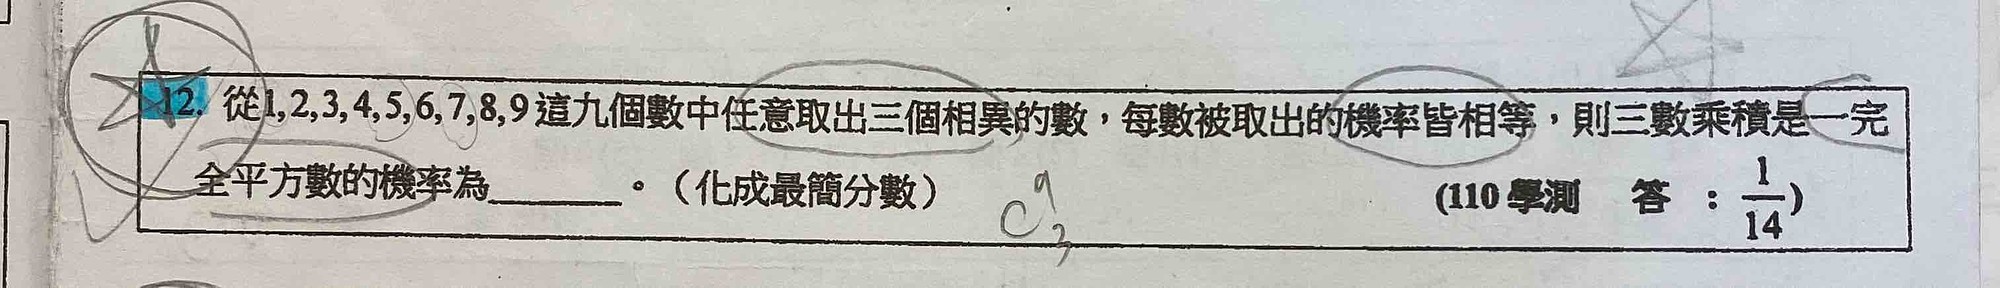 12. 從1,2,3,4,5,6,7,8,9這九個數中任意取出三個相異的數，每數被取出的機率皆相等，則三數乘積是一完
全平方數的機率為______。（化成最簡分數） (110 學測 答：1/14)
C 9 3